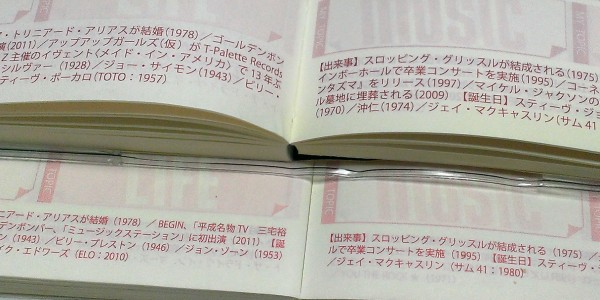 ・トリニアード・アリアスが結婚（1978）／ゴールデンボン
演（2011）／アップアップガールズ（仮）が T-Palette Records
Z 主催のイヴェント〈メイド・イン・アメリカ〉で 13 年ぶ
シルヴァー（1928）／ジョー・サイモン（1943）／ビリー・
スティーヴ・ポーカロ（TOTO：1957）
MY TOPIC
【出来事】スロッビング・グリッスルが結成される（1975）
インボーホールで卒業コンサートを実施（1995）／コーネ
ンタズマ』をリリース（1997）／マイケル・ジャクソンの
ル墓地に埋葬される（2009）【誕生日】スティーヴ・ジョ
（1970）／沖仁（1974）／ジェイ・マクキャスリン（サム 41：
TOPIC
ニアード・アリアスが結婚（1978）／ BEGIN、「平成名物 TV　三宅裕
デンボンバー、「ミュージックステーション」に初出演（2011）【誕
ン（1943）／ビリー・プレストン（1946）／ジョン・ゾーン（1953）
イク・エドワーズ（ELO：2010）
TOPIC
【出来事】スロッビング・グリッスルが結成される（1975）／
ルで卒業コンサートを実施（1995）【誕生日】スティーヴ・
／ジェイ・マクキャスリン（サム 41：1980）